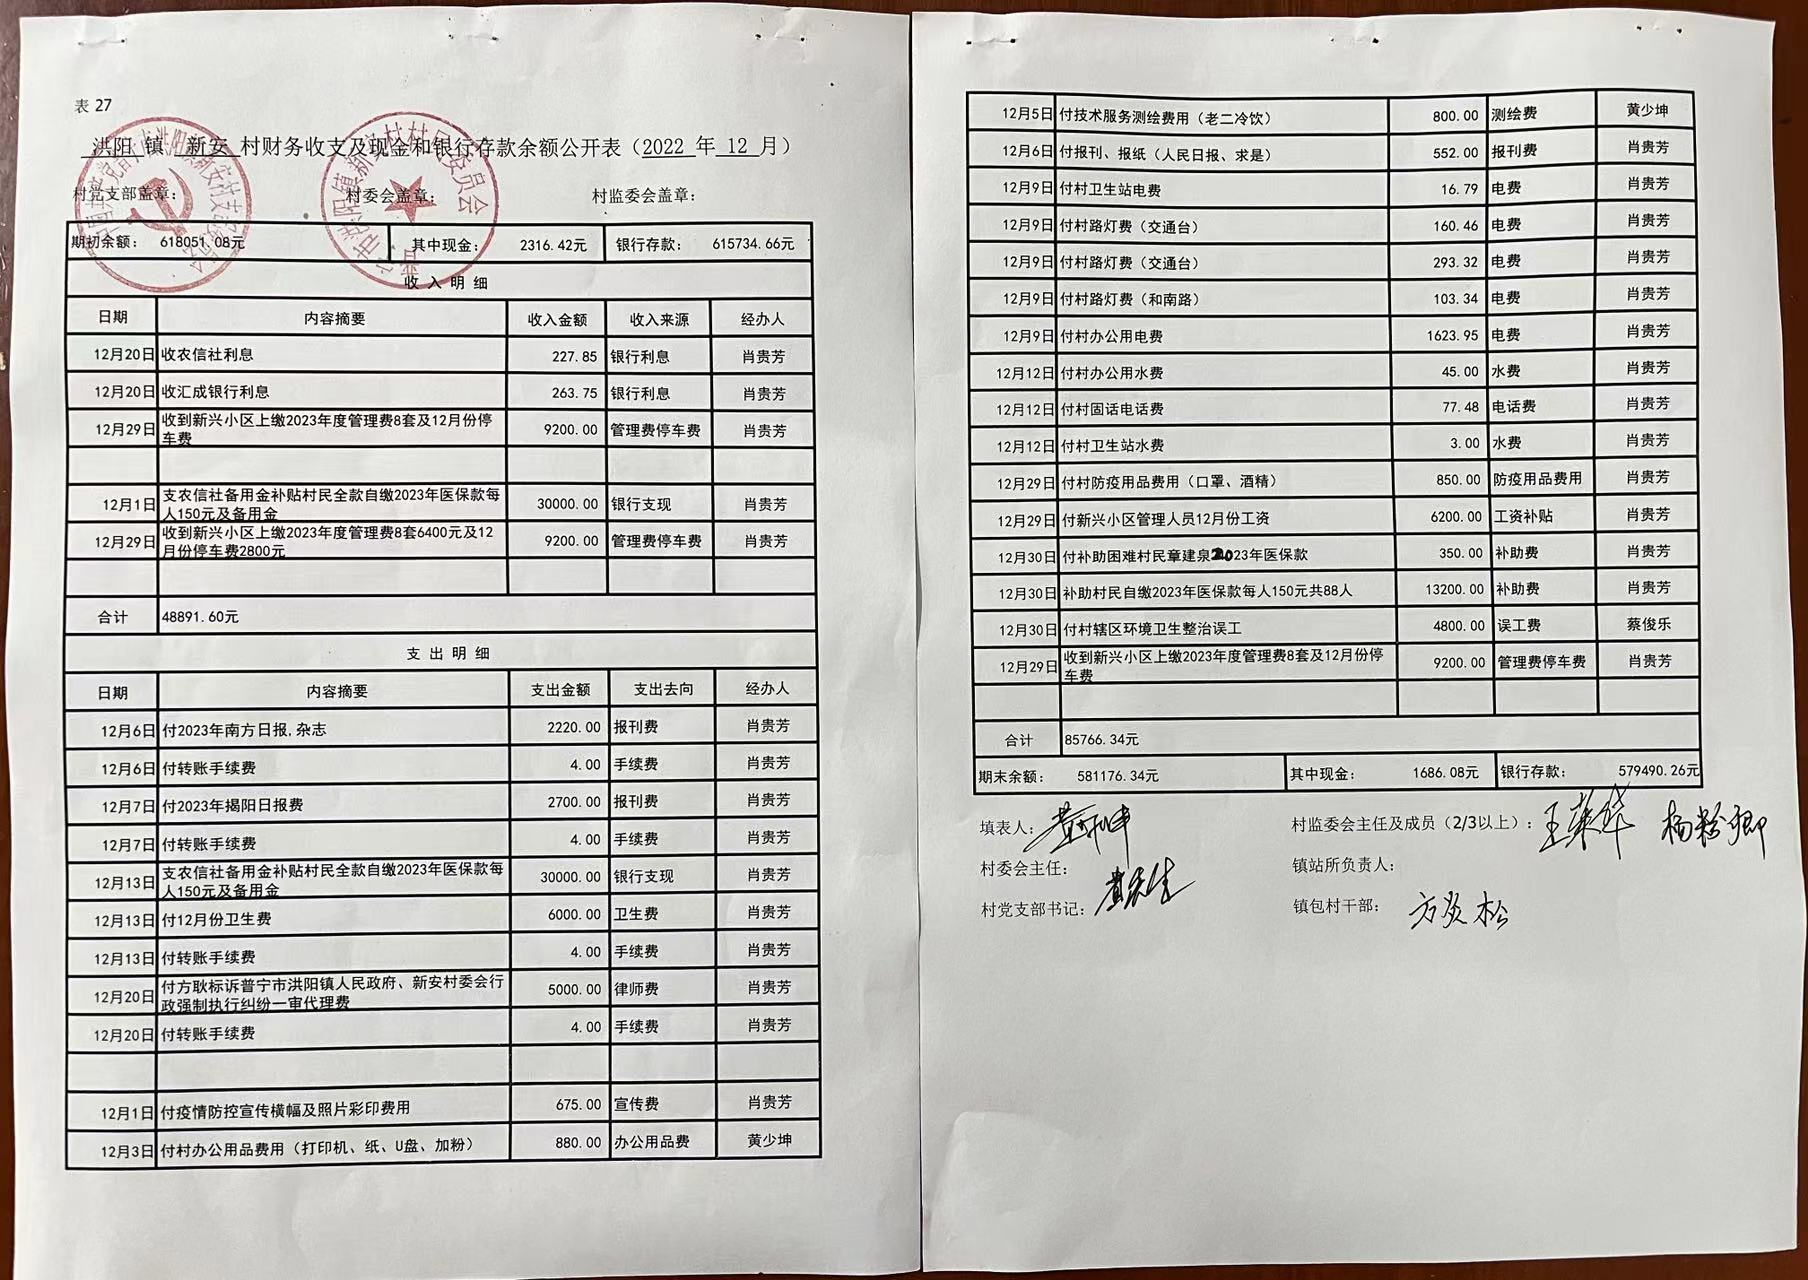 表 27
洪阳 镇 新安 村财务收支及现金和银行存款余额公开表（2022 年 12 月）
村党支部盖章： 村委会盖章： 村监委会盖章：
期初余额： 618051.08元 其中现金： 2316.42元 银行存款： 615734.66元
收 入 明 细
日期 内容摘要 收入金额 收入来源 经办人
12月20日 收农信社利息 227.85 银行利息 肖贵芳
12月20日 收汇成银行利息 263.75 银行利息 肖贵芳
12月29日 收到新兴小区上缴2023年度管理费8套及12月份停车费 9200.00 管理费停车费 肖贵芳
12月1日 支农信社备用金补贴村民全款自缴2023年医保款每人150元及备用金 30000.00 银行支现 肖贵芳
12月29日 收到新兴小区上缴2023年度管理费8套6400元及12月份停车费2800元 9200.00 管理费停车费 肖贵芳
合计 48891.60元
支 出 明 细
日期 内容摘要 支出金额 支出去向 经办人
12月6日 付2023年南方日报,杂志 2220.00 报刊费 肖贵芳
12月6日 付转账手续费 4.00 手续费 肖贵芳
12月7日 付2023年揭阳日报费 2700.00 报刊费 肖贵芳
12月7日 付转账手续费 4.00 手续费 肖贵芳
12月13日 支农信社备用金补贴村民全款自缴2023年医保款每人150元及备用金 30000.00 银行支现 肖贵芳
12月13日 付12月份卫生费 6000.00 卫生费 肖贵芳
12月13日 付转账手续费 4.00 手续费 肖贵芳
12月20日 付方耿标诉普宁市洪阳镇人民政府、新安村委会行政强制执行纠纷一审代理费 5000.00 律师费 肖贵芳
12月20日 付转账手续费 4.00 手续费 肖贵芳
12月1日 付疫情防控宣传横幅及照片彩印费用 675.00 宣传费 肖贵芳
12月3日 付村办公用品费用（打印机、纸、U盘、加粉） 880.00 办公用品费 黄少坤
12月5日 付技术服务测绘费用（老二冷饮） 800.00 测绘费 黄少坤
12月6日 付报刊、报纸（人民日报、求是） 552.00 报刊费 肖贵芳
12月9日 付村卫生站电费 16.79 电费 肖贵芳
12月9日 付村路灯费（交通台） 160.46 电费 肖贵芳
12月9日 付村路灯费（交通台） 293.32 电费 肖贵芳
12月9日 付村路灯费（和南路） 103.34 电费 肖贵芳
12月9日 付村办公用电费 1623.95 电费 肖贵芳
12月12日 付村办公用水费 45.00 水费 肖贵芳
12月12日 付村固话电话费 77.48 电话费 肖贵芳
12月12日 付村卫生站水费 3.00 水费 肖贵芳
12月29日 付村防疫用品费用（口罩、酒精） 850.00 防疫用品费用 肖贵芳
12月29日 付新兴小区管理人员12月份工资 6200.00 工资补贴 肖贵芳
12月30日 付补助困难村民章建泉2023年医保款 350.00 补助费 肖贵芳
12月30日 补助村民自缴2023年医保款每人150元共88人 13200.00 补助费 肖贵芳
12月30日 付村辖区环境卫生整治误工 4800.00 误工费 蔡俊乐
12月29日 收到新兴小区上缴2023年度管理费8套及12月份停车费 9200.00 管理费停车费 肖贵芳
合计 85766.34元
期末余额： 581176.34元 其中现金： 1686.08元 银行存款： 579490.26元
填表人： 村监委会主任及成员（2/3以上）：
村委会主任： 镇站所负责人：
村党支部书记： 镇包村干部： 方炎松